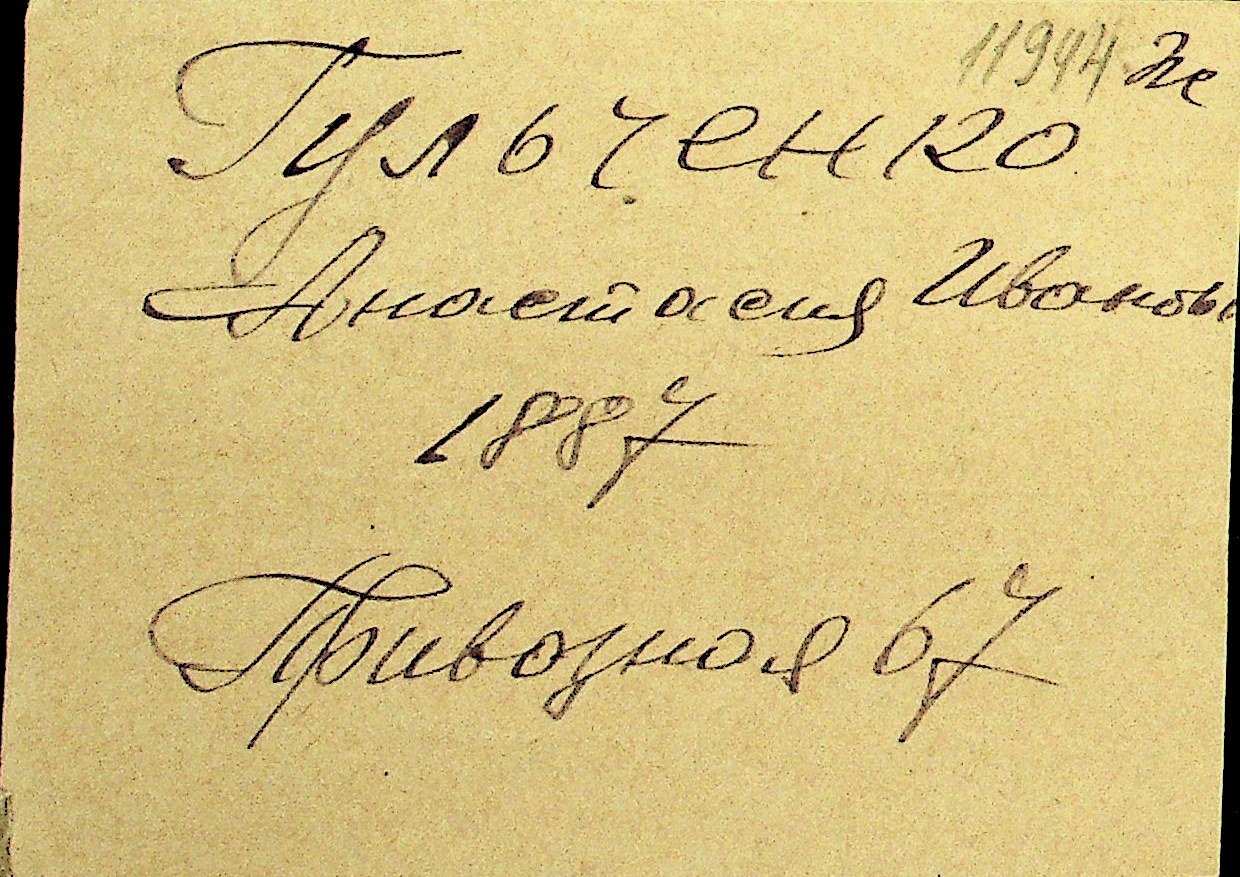 11944
Гульченко
Анастасия Ивановн
1887
Привозная 67